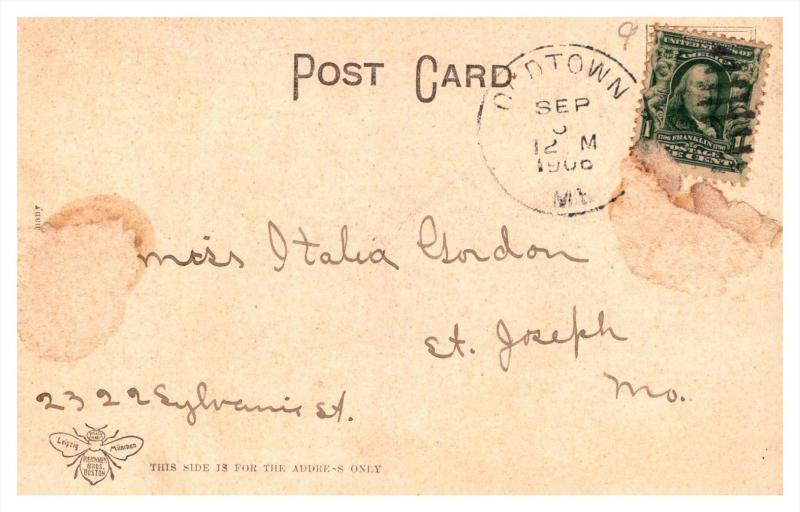 POST CARD
OLDTOWN
SEP
12 M
1906
ME
UNITED STATES OF
AMERICA
1706 FRANKLIN 1790
POSTAGE
1
E CENT
Miss Italia Gordon
St. Joseph
Mo.
2322 Sylvanie St.
Leipzig München
REICHNER
BROS.
BOSTON
THIS SIDE IS FOR THE ADDRE-S ONLY